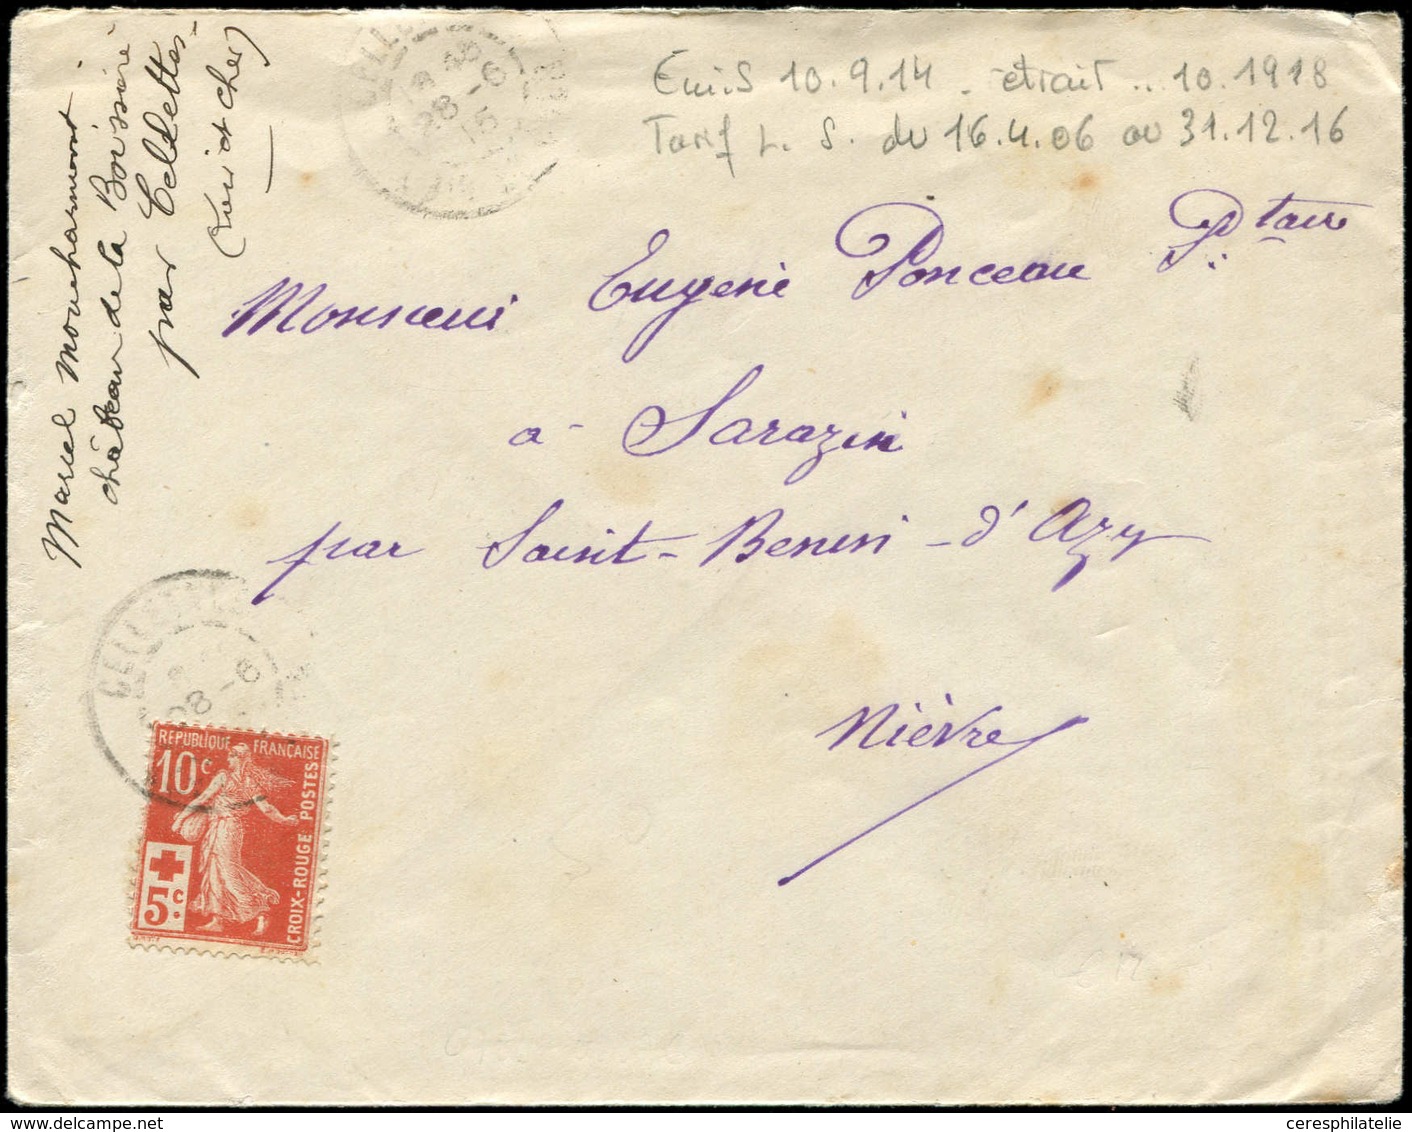 Marcel Moncharmont
château de la Boissière
par Cellettes
(Loir et Cher)
CELLE
18 45
28 - 6
15
Emis 10.9.14 - retrait .. 10.1918
Tarif L. S. du 16.4.06 au 31.12.16
Monsieur Eugène Ponceau Ptaire
a - Sarazin
par Saint-Benin-d'Azy
Nièvre
28 - 6
REPUBLIQUE FRANÇAISE
10c
POSTES
CROIX-ROUGE
5c.
ceresphilatelie